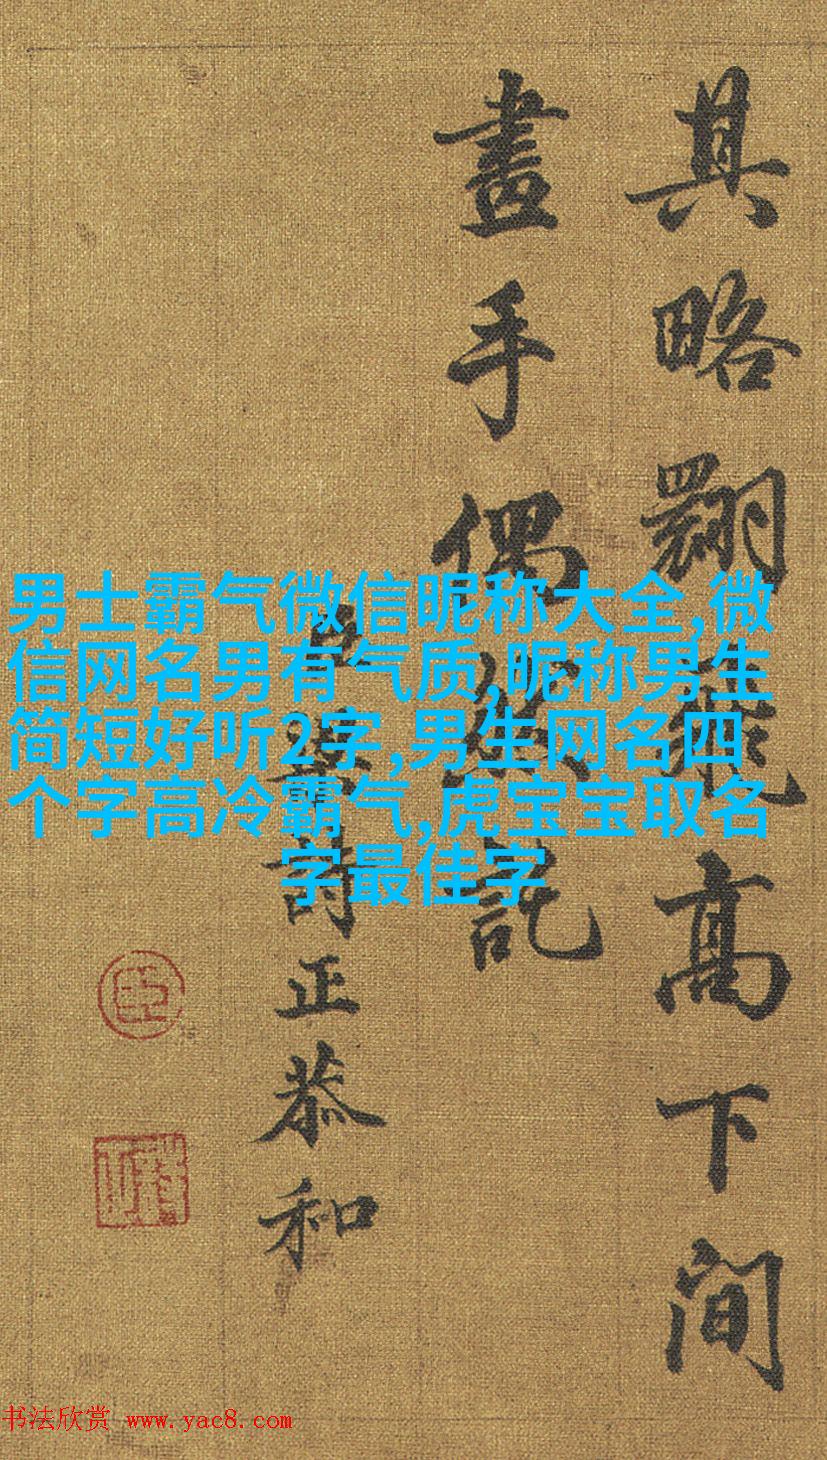 其略翾飛高下間
畫手偶然託
臣梁詩正恭和
臣
男士霸气微信昵称大全,微
信网名男有气质,昵称男生
简短好听2字,男生网名四
个字高冷霸气,虎宝宝取名
字最佳字
书法欣赏 www.yac8.com